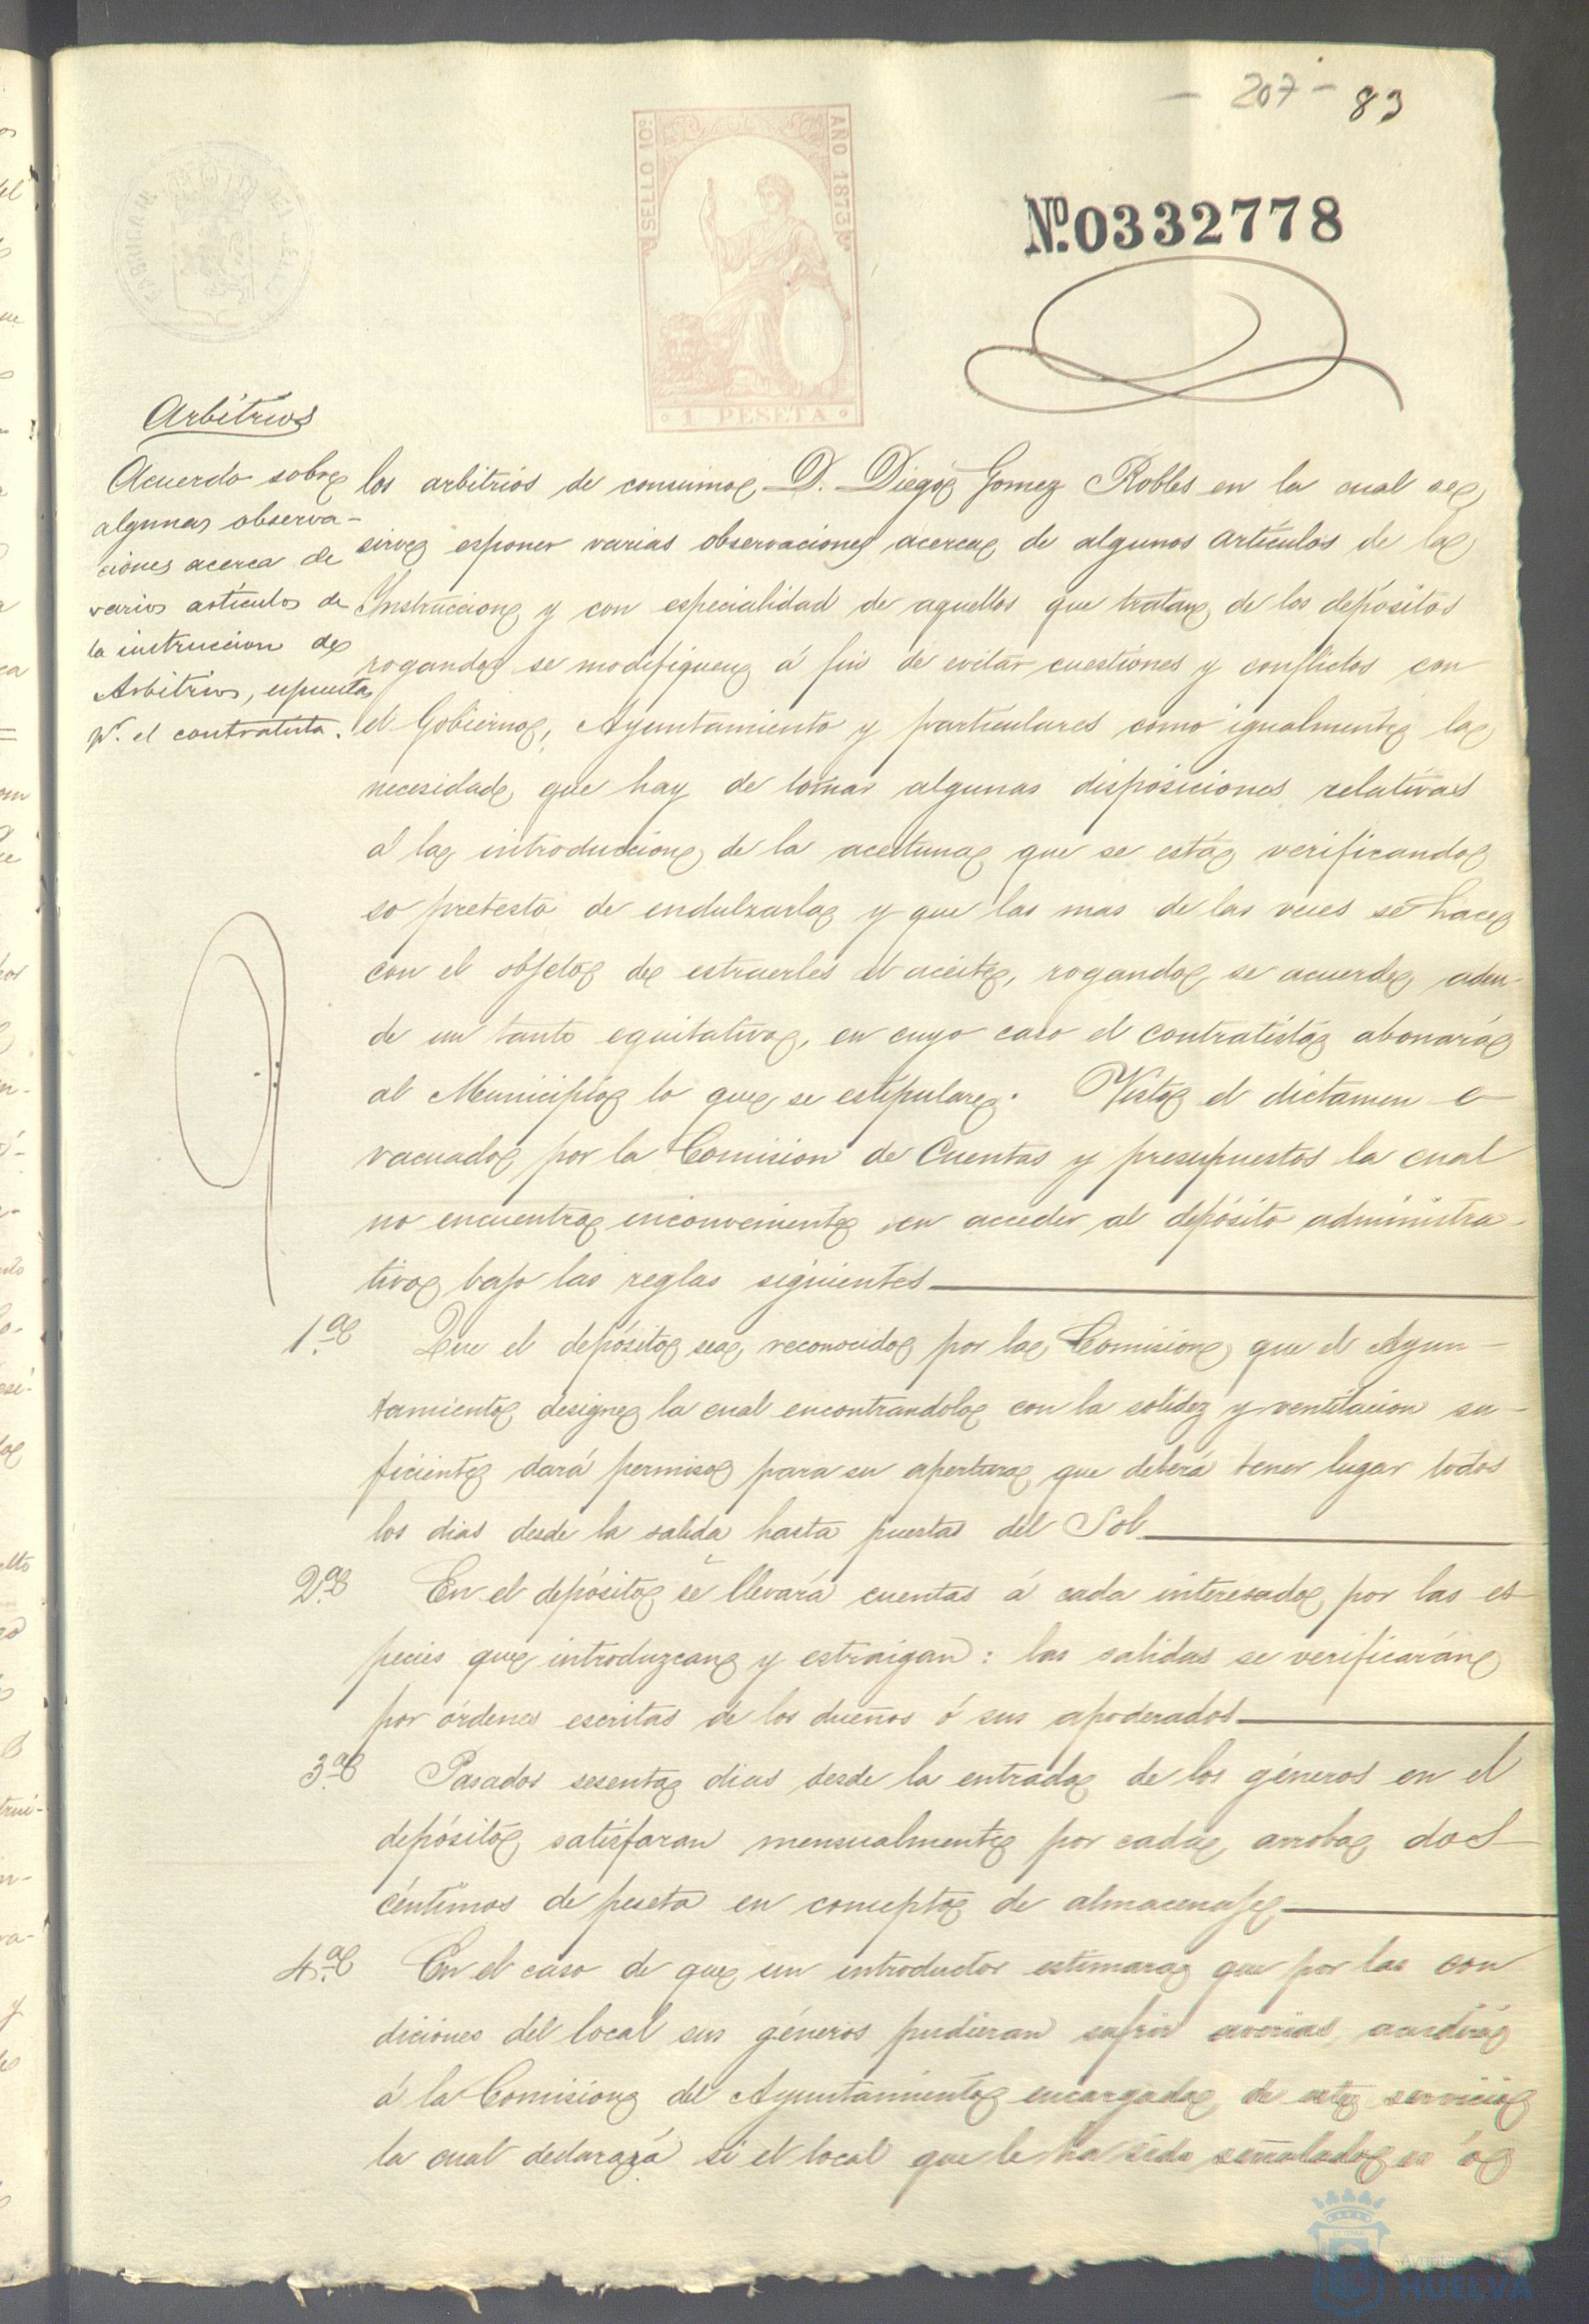 - 207 - 83
SELLO 10º
AÑO 1873
1 PESETA
Nº. 0332778
Arbitrios
Acuerdo sobre
algunas observa-
ciones acerca de
varios artículos de
la instruccion de
Arbitrios, espuesta
pr. el contratista.
los arbitrios de consumo D. Diego Gomez Robles en la cual se
sirve esponer varias observaciones acerca de algunos artículos de la
Instruccion y con especialidad de aquellos que tratan de los depósitos
rogando se modifiquen á fin de evitar cuestiones y conflictos con
el Gobierno, Ayuntamiento y particulares como igualmente la
necesidad que hay de tomar algunas disposiciones relativas
á la introduccion de la aceituna que se está verificando
so pretesto de endulzarla y que las mas de las veces se hace
con el objeto de estraerles el aceite, rogando se acuerde aden-
de un tanto equitativo, en cuyo caso el contratista abonará
al Municipio lo que se estipulare. Visto el dictamen e
vacuado por la Comision de Cuentas y presupuestos la cual
no encuentra inconveniente en acceder al depósito administra-
tivo bajo las reglas siguientes
1.ª Que el depósito sea reconocido por la Comision que el Ayun-
tamiento designe la cual encontrandolo con la solidez y ventilacion su-
ficiente dará permiso para su apertura que deberá tener lugar todos
los dias desde la salida hasta puesta del Sol
2.ª En el depósito se llevará cuentas á cada interesado por las es
pecies que introduzcan y estraigan: las salidas se verificarán
por órdenes escritas de los dueños ó sus apoderados
3.ª Pasados sesenta dias desde la entrada de los géneros en el
depósito satisfaran mensualmente por cada arroba dos
céntimos de peseta en concepto de almacenaje
4.ª En el caso de que un introductor estimara que por las con
diciones del local sus géneros pudieran sufrir averias acudirá
á la Comision del Ayuntamiento encargada de este servicio
la cual declarará si el local que le ha sido señalado es ó
HUELVA